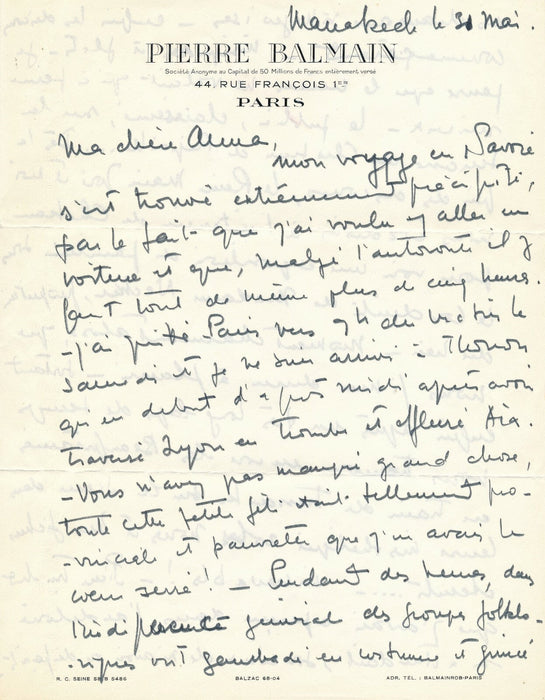 Marrakech le 31 Mai.
PIERRE BALMAIN
Société Anonyme au Capital de 50 Millions de Francs entièrement versé
44, RUE FRANÇOIS 1ER
PARIS
Ma chère Anna,
mon voyage en Savoie
s'est trouvé extrêmement précipité,
par le fait que j'ai voulu y aller en
voiture et que, malgré l'autoroute il y
faut tout de même plus de cinq heures.
- j'ai quitté Paris vers 7h du matin le
samedi et je ne suis arrivé à Thonon
qu'en début d'après midi après avoir
traversé Lyon en trombe et effleuré Aix.
- Vous n'avez pas manqué grand chose,
toute cette petite fête était tellement pro-
-vinciale et pauvrette que j'en avais le
cœur serré! - Pendant des heures, dans
l'indifférence générale des groupes folklo-
-riques ont gambadé en costume et grincé
R. C. SEINE 5486
BALZAC 68-04
ADR. TÉL. : BALMAINROB-PARIS